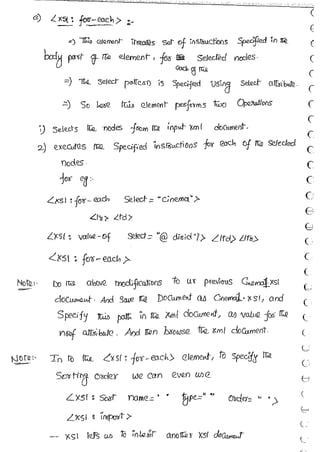 d) <xsl : for-each> :-
=) This element iterates set of instructions Specified in the
body part of the element, for Selected nodes.
each of the
=) The Select path(can) is Specified Using Select attribute.
=) So here this element performs two Operations
1) Selects the nodes from the input xml document.
2) executes the Specified instructions for each of the selected
nodes.
for eg:-
<xsl : for-each Select = "cinema">
<tr> <td>
<xsl : value-of Select = "@ dirid"/> </td> </tr>
</xsl : for-each>
Note:- Do the above modifications to ur previous Cinema1.xsl
document. And Save the Document as Cinema1.xsl, and
Specify this path in the Xml document, as value for the
href attribute. And then browse the xml document.
Note:- In to the <xsl : for-each> element, to specify the
Sorting order we can even use
<xsl : Sort name=" " type=" " order=" ">
<xsl : import>
-- xsl lets us to inherit another xsl document